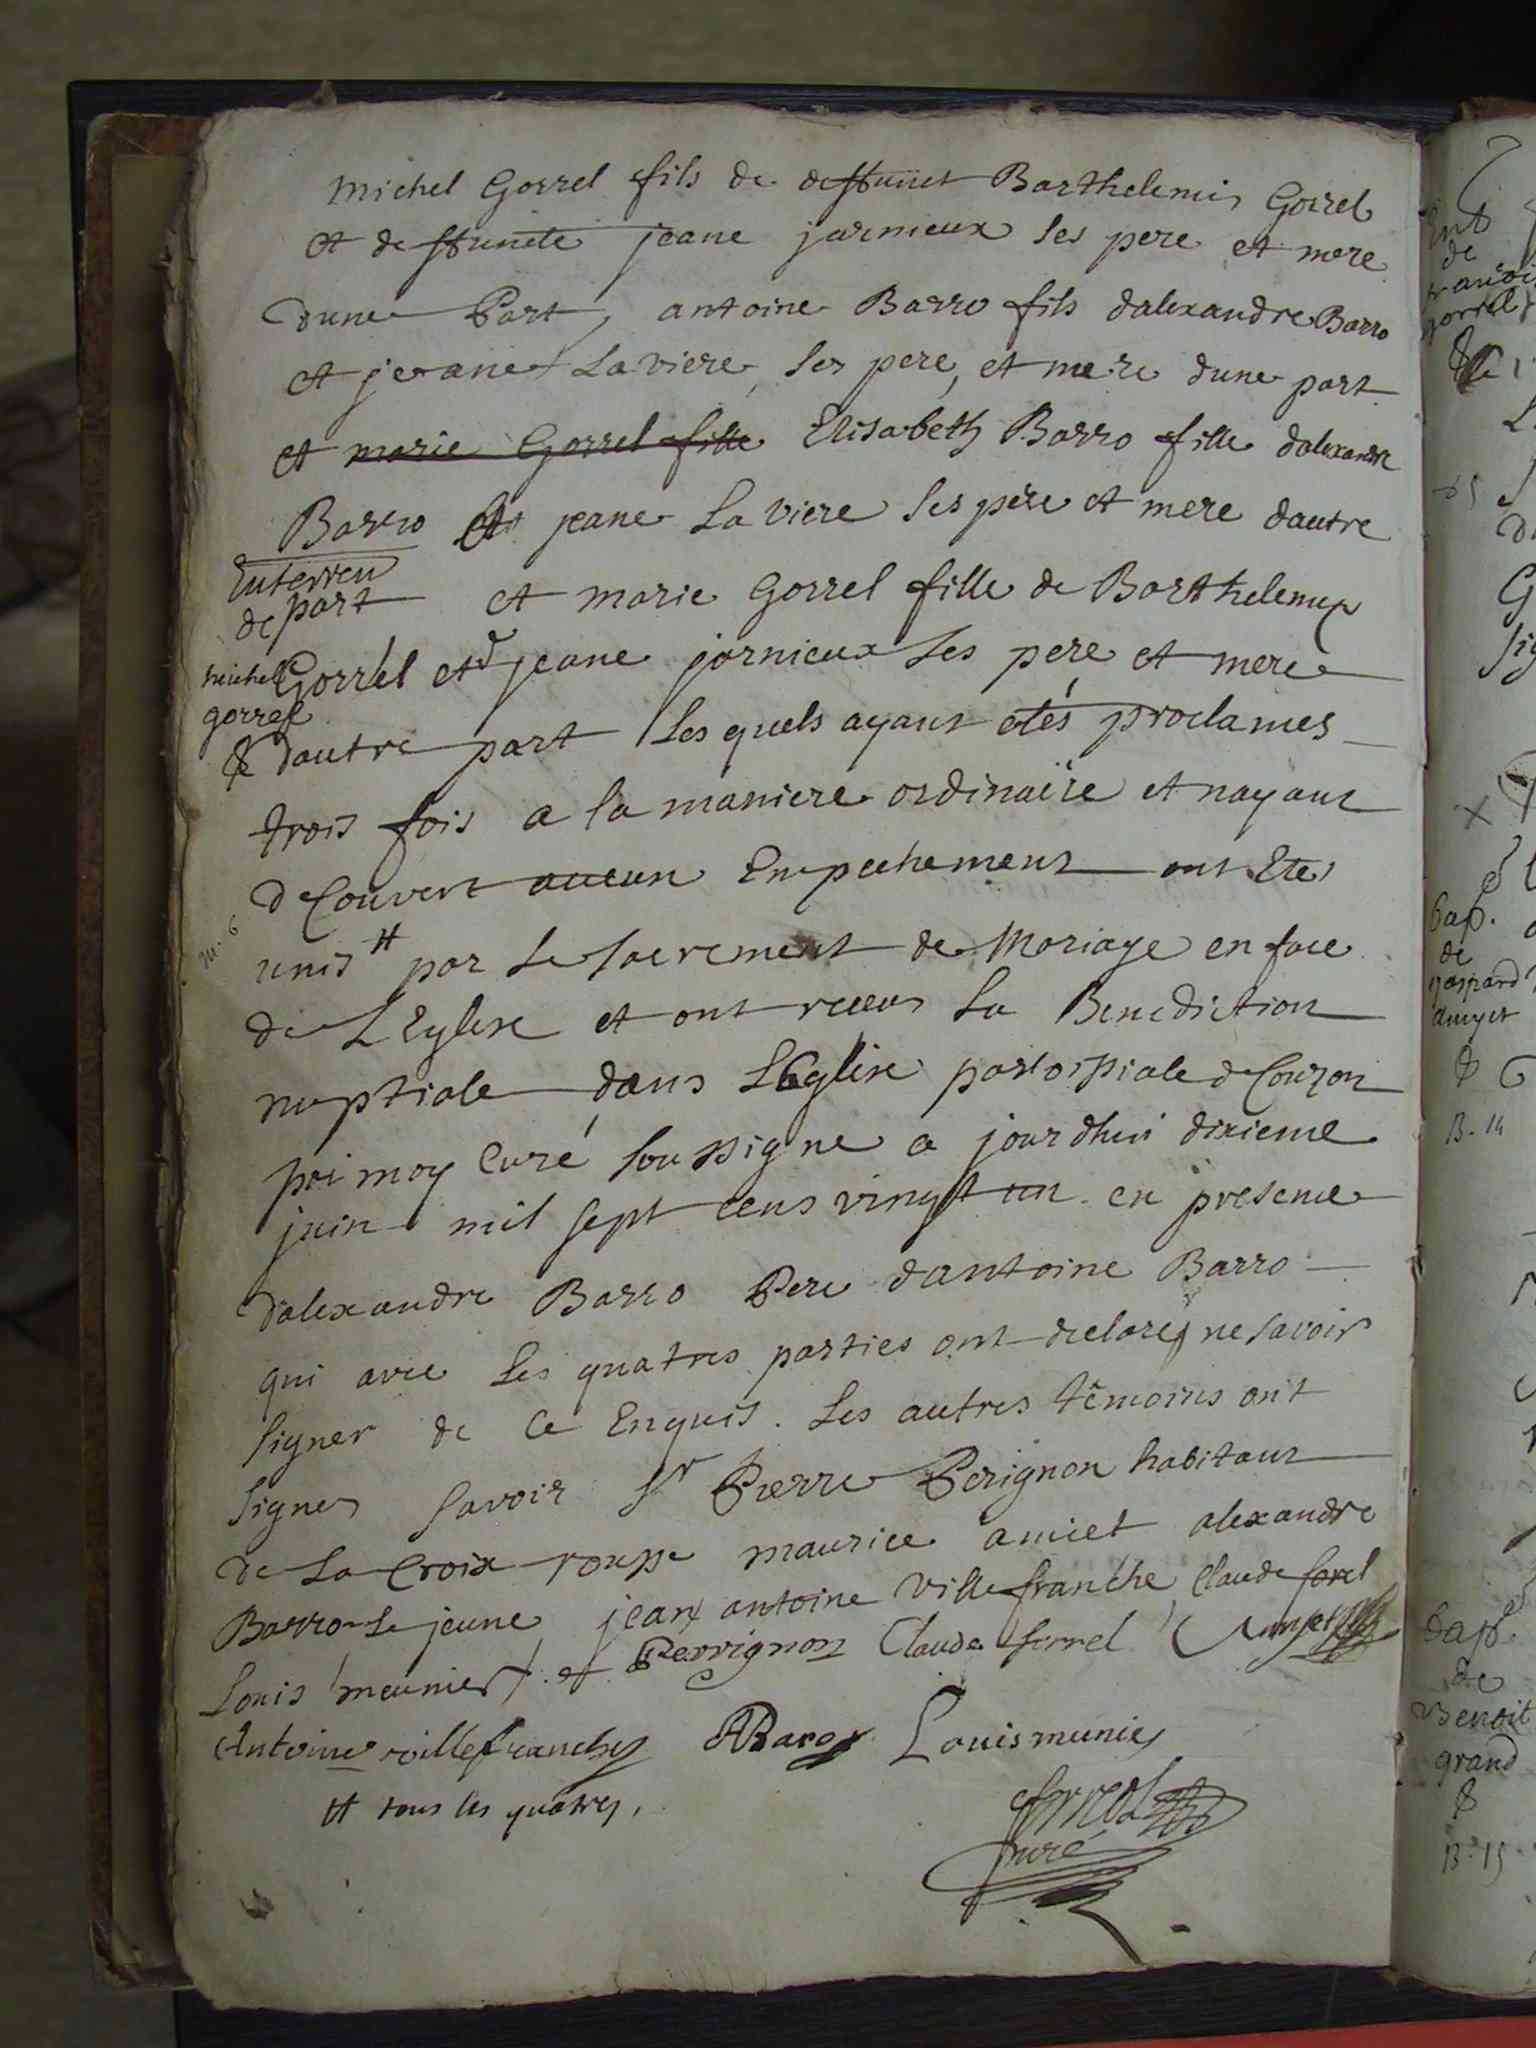 Michel Gorrel fils de deffunct Barthelemi Gorrel
et de ffuncte jeane jarnieux ses pere et mere
dune Part, antoine Barro fils dalexandre Barro
et jeane Laviere, ses pere, et mere dune part
et marie Gorrel fille Elisabeth Barro fille dalexandre
Barro et jeane La viere ses pere et mere dautre
Enterren
de part et marie Gorrel fille de Barthelemy
michel
gorrel
Gorrel et jeane jarnieux ses pere et mere
& dautre part Les quels ayant etés proclames
trois fois a la maniere ordinaire et nayant
decouvert aucun Empechement ont Etes
m. 6
unis # par Le sacrement de Mariage en face
de LEglise et ont receus La Benediction
nuptiale dans LEglise paroissiale de Couzon
par moy Curé soussigne a jourdhui dixieme
juin mil sept cens vingt un en presence
dalexandre Barro Pere dantoine Barro
qui avec Les quatres parties ont declare ne savoir
signer de ce Enquis. Les autres temoins ont
signes savoir Sr Pierre Perignon habitant
de La Croix rousse maurice amiet alexandre
Barro Le jeune jean antoine Villefranche Claude forel
Louis meunier et Perrignon Claude ferrel
Antoine villefranche ABaro Louis munier
# tous les quatres.
curé
Ent
de
gorrel
&
Bap.
de
gaspard
&
B. 14
Bap.
de
Benoit
grand
&
B. 15